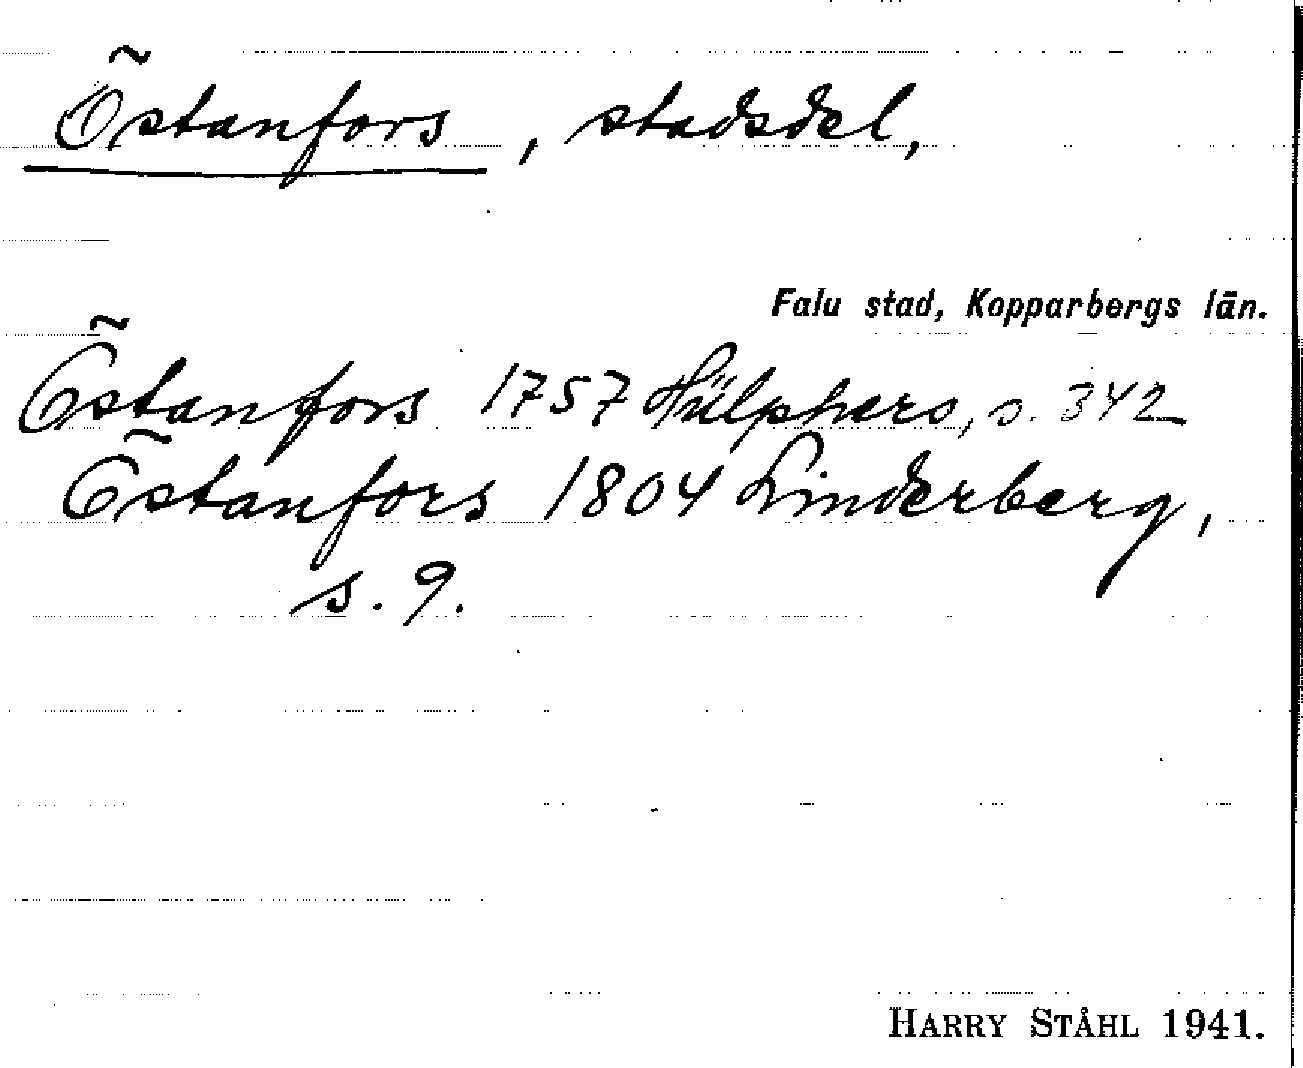 Östanfors, stadsdel,
Falu stad, Kopparbergs län.
Östanfors 1757 Hülphers, s. 342
Östanfors 1804 Linderberg,
s. 9.
HARRY STÅHL 1941.